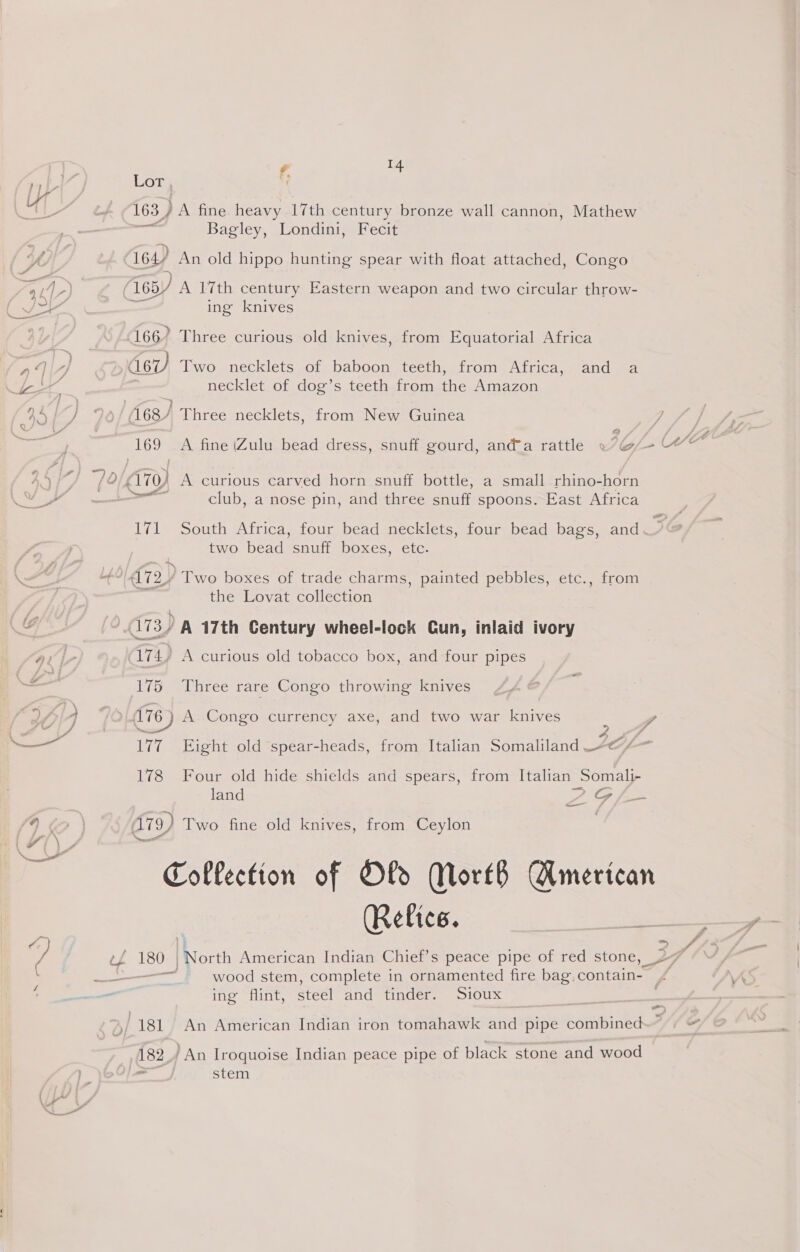 14
Lot
163 A fine heavy 17th century bronze wall cannon, Mathew
Bagley, Londini, Fecit
164 An old hippo hunting spear with float attached, Congo
165 A 17th century Eastern weapon and two circular throw-
ing knives
166 Three curious old knives, from Equatorial Africa
167 Two necklets of baboon teeth, from Africa, and a
necklet of dog's teeth from the Amazon
168 Three necklets, from New Guinea
169 A fine Zulu bead dress, snuff gourd, and a rattle
170 A curious carved horn snuff bottle, a small rhino-horn
club, a nose pin, and three snuff spoons. East Africa
171 South Africa, four bead necklets, four bead bags, and
two bead snuff boxes, etc.
172 Two boxes of trade charms, painted pebbles, etc., from
the Lovat collection
173 A 17th Century wheel-lock Gun, inlaid ivory
174 A curious old tobacco box, and four pipes
175 Three rare Congo throwing knives
176 A Congo currency axe, and two war knives
177 Eight old spear-heads, from Italian Somaliland
178 Four old hide shields and spears, from Italian Somali-
land
179 Two fine old knives, from Ceylon
Collection of Old North American
Relics.
180 North American Indian Chief's peace pipe of red stone,
wood stem, complete in ornamented fire bag contain-
ing flint, steel and tinder. Sioux
181 An American Indian iron tomahawk and pipe combined
182 An Iroquoise Indian peace pipe of black stone and wood
stem